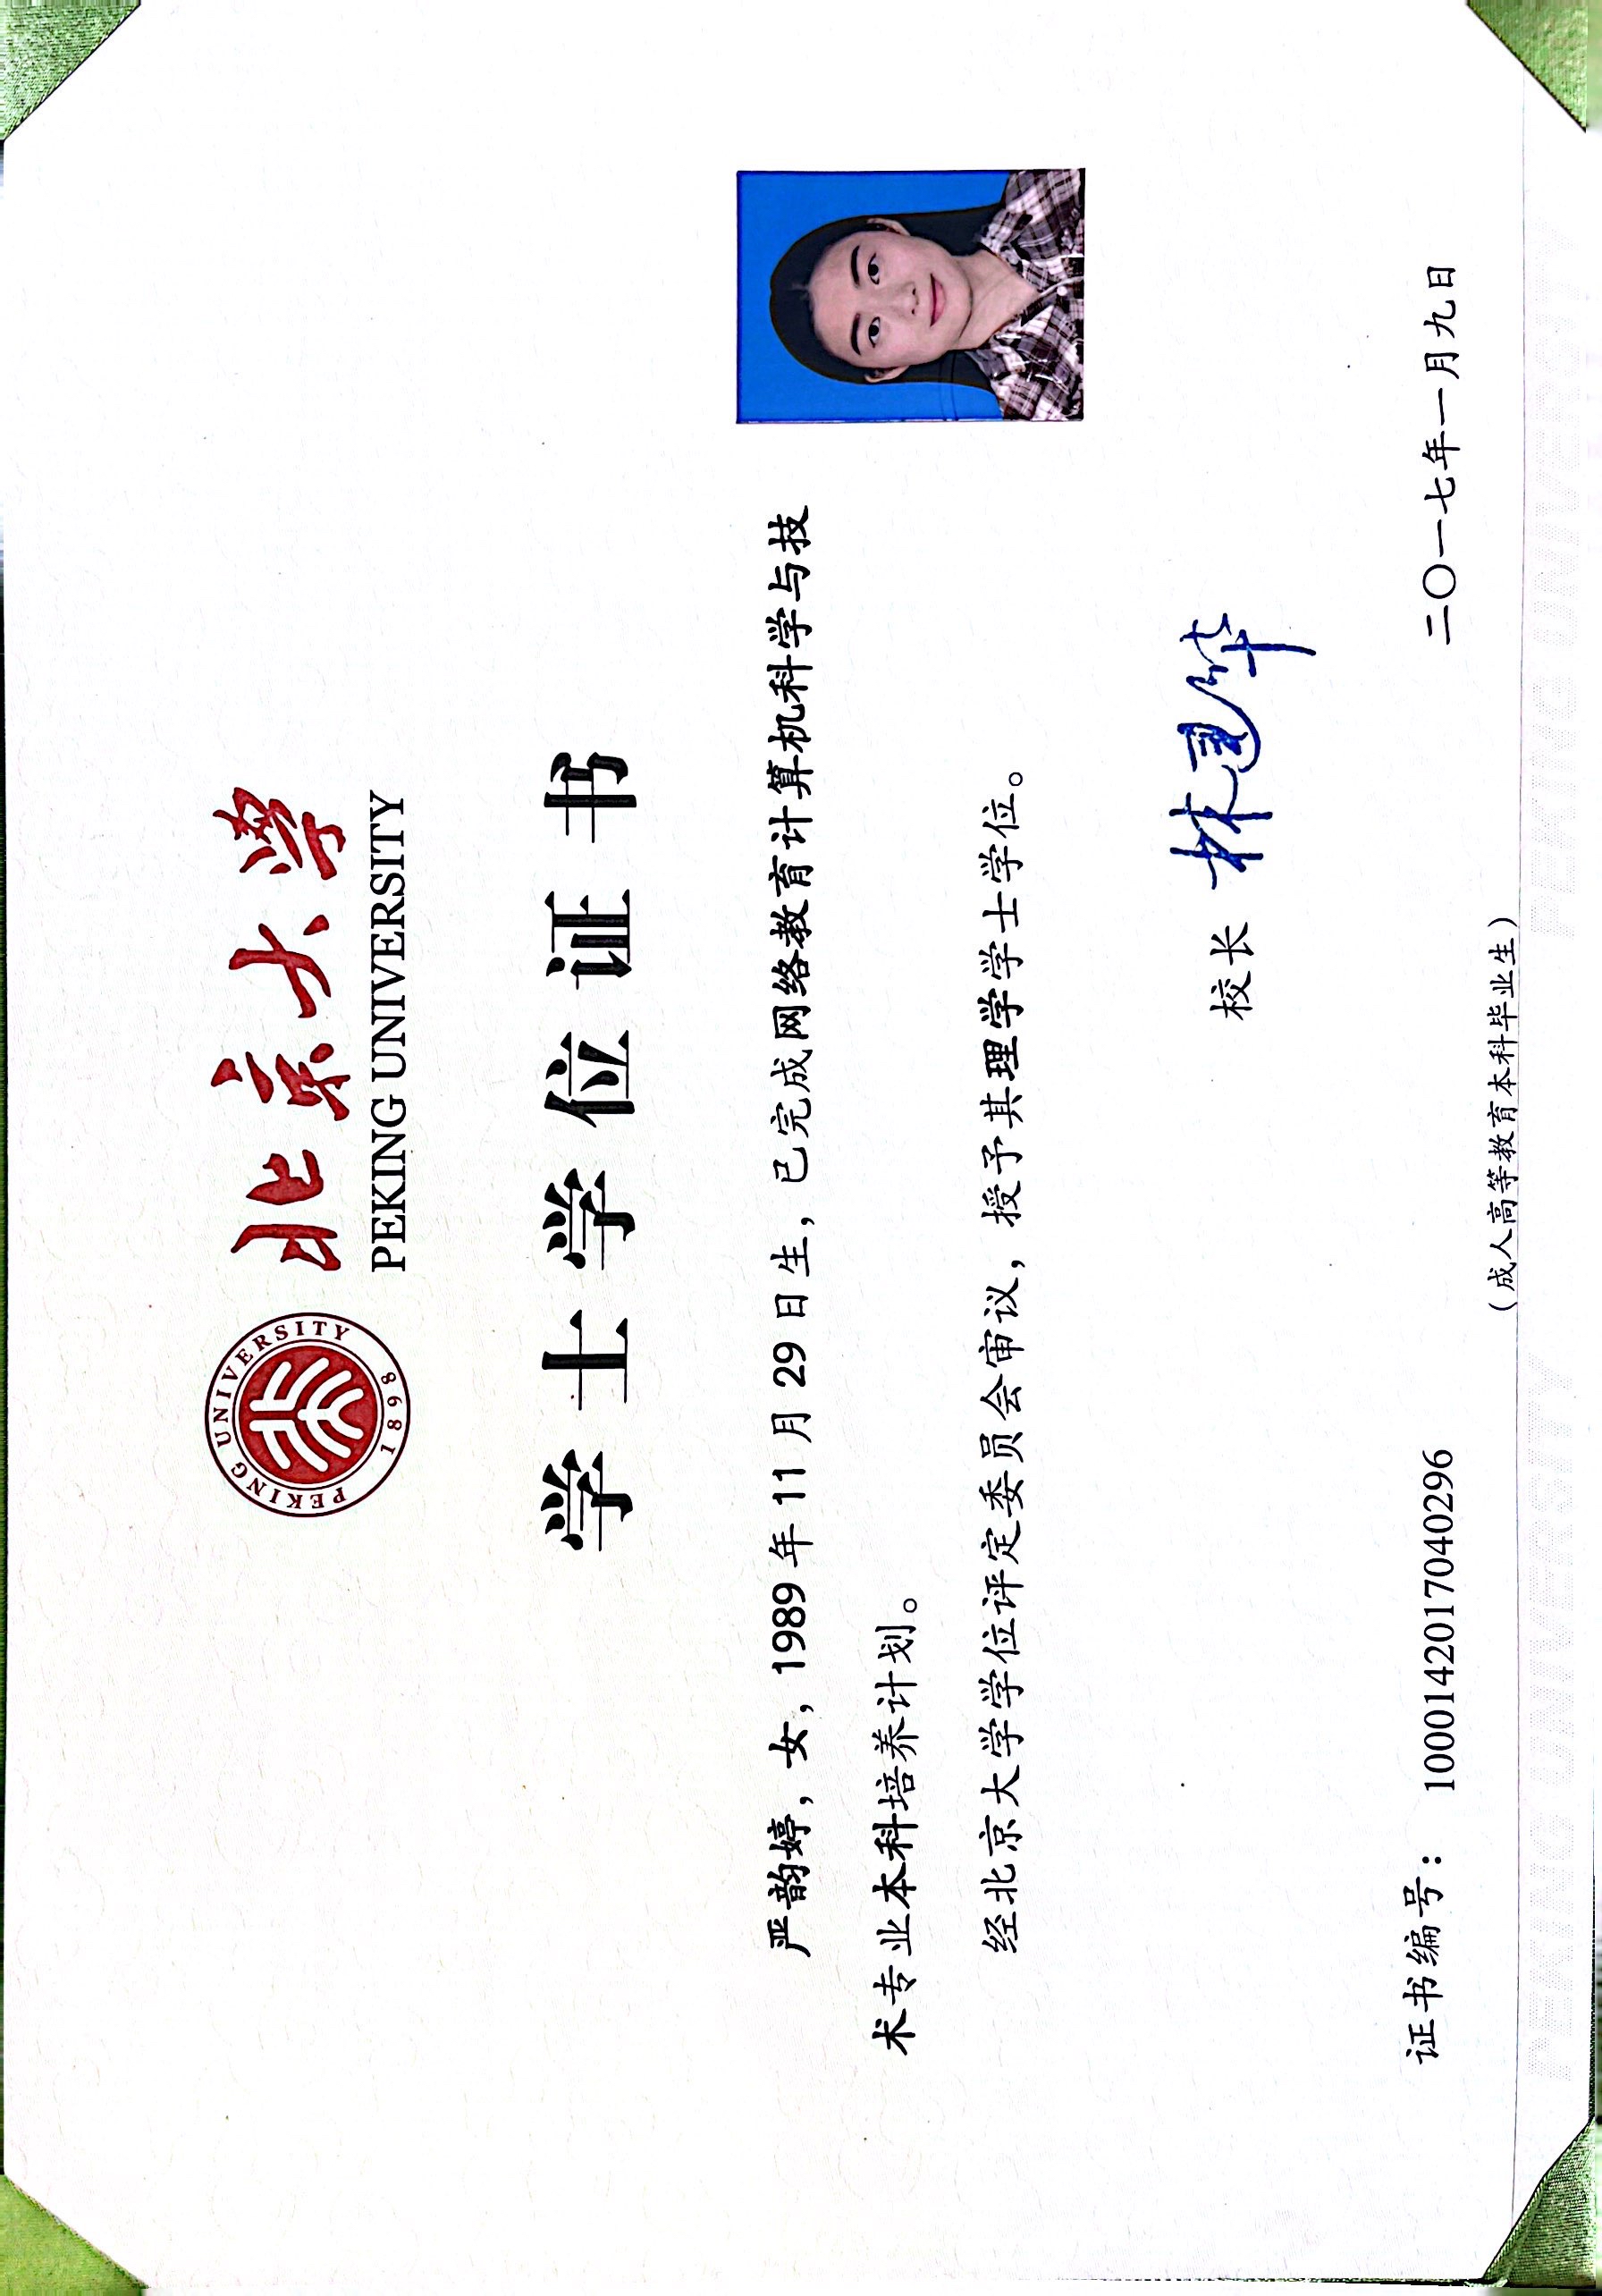 北京大学
PEKING UNIVERSITY
PEKING UNIVERSITY
1898
学士学位证书
严韵婷，女，1989年11月29日生，已完成网络教育计算机科学与技
术专业本科培养计划。
经北京大学学位评定委员会审议，授予其理学学士学位。
校长 林建华
证书编号： 1000142017040296
二〇一七年一月九日
（成人高等教育本科毕业生）
PEKING UNIVERSITY
PEKING UNIVERSITY